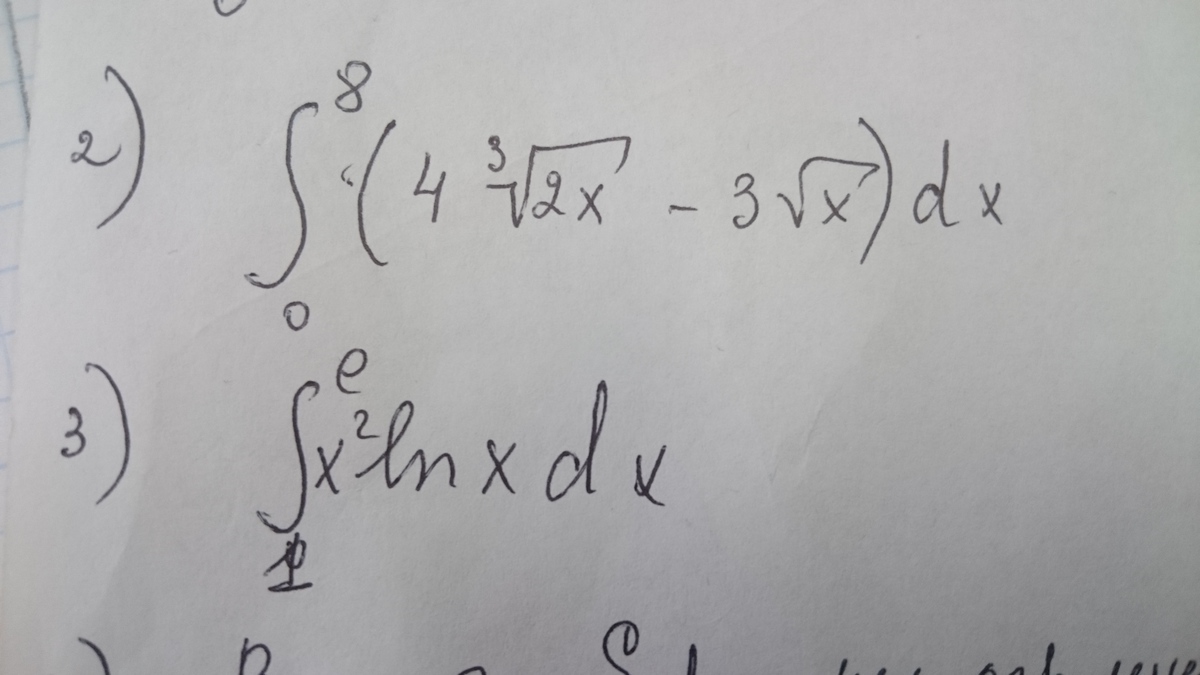 2) ∫₀⁸ (4 ∛(2x) - 3√x) dx
3) ∫₁ᵉ x² ln x dx